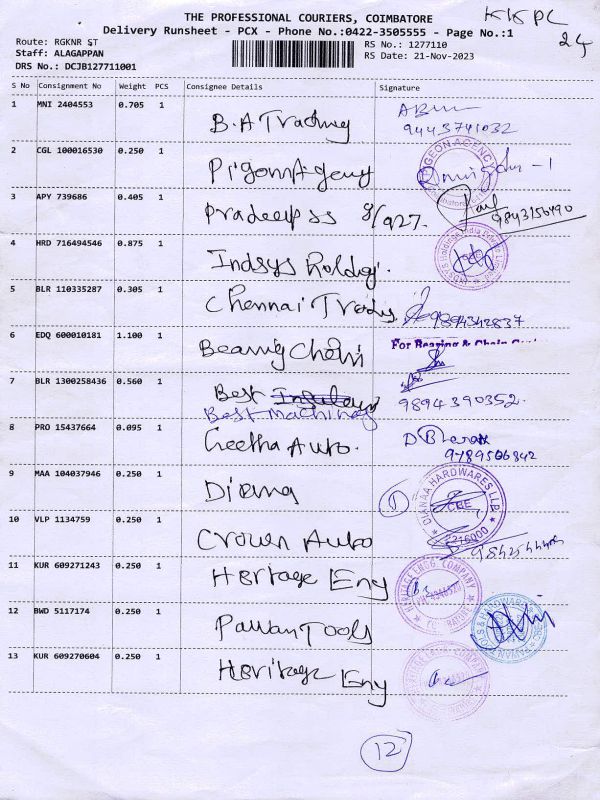 THE PROFESSIONAL COURIERS, COIMBATORE
KKPC
Delivery Runsheet - PCX - Phone No.:0422-3505555 - Page No.:1
24
Route: RGKNR ST
RS No.: 1277110
Staff: ALAGAPPAN
RS Date: 21-Nov-2023
DRS No.: DCJB127711001
S No Consignment No Weight PCS Consignee Details Signature
1 MNI 2404553 0.705 1 B.A Trading
9443741032
2 CGL 100016530 0.250 1 Pigon Agency
PIGEON AGENCY
3 APY 739686 0.405 1 Pradeep ss 8/927.
9843156490
4 HRD 716494546 0.875 1 Indsys Holdgi.
5 BLR 110335287 0.305 1 Chennai Trady
9894342837
6 EDQ 600010181 1.100 1 Bearing Chain
For Bearing & Chain
7 BLR 1300258436 0.560 1 Best
Best Machinery
9894390352.
8 PRO 15437664 0.095 1 Geetha Auto.
D Bharath
9789506842
9 MAA 104037946 0.250 1 Diana
1 DIANAA HARDWARES LLP CBE
10 VLP 1134759 0.250 1 Crown Auto
11 KUR 609271243 0.250 1 Heritage Eng
HERITAGE ENGG. COMPANY
12 BWD 5117174 0.250 1 Pawan Tools
PAWAN TOOLS & HARDWARE
13 KUR 609270604 0.250 1 Heritage Eng
12